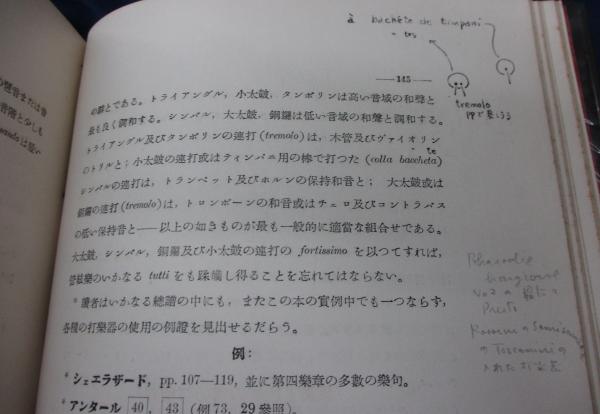 à bachéte de timpani
—145
tremolo
ppで
の群とである。トライアングル，小太鼓，タンボリンは高い音域の和聲と
最も良く調和する。シンバル，大太鼓，銅鑼は低い音域の和聲と調和する。
トライアングル及びタンボリンの連打(tremolo)は，木管及びヴァイオリン
のトリルと；小太鼓の連打或はティンパニ用の棒で打つた (colla baccheta)
te
シンバルの連打は，トランペット及びホルンの保持和音と； 大太鼓或は
銅鑼の連打(tremolo)は，トロンボーンの和音或はチェロ及びコントラバス
の低い保持音と——以上の如きものが最も一般的に適當な組合せである。
大太鼓，シンバル，銅鑼及び小太鼓の連打の fortissimo を以つてすれば，
管絃樂のいかなる tutti をも蹂躙し得ることを忘れてはならない。
*讀者はいかなる總譜の中にも，またこの本の實例中でも一つならず，
各種の打樂器の使用の例證を見出せるだらう。
例：
* シェエラザード，pp. 107—119，並に第四樂章の多數の樂句。
* アンタール 40，43 (例 73, 29 參照)。
Rhapsodie
hongroise
No 2 の
Presto
の Toscanini の